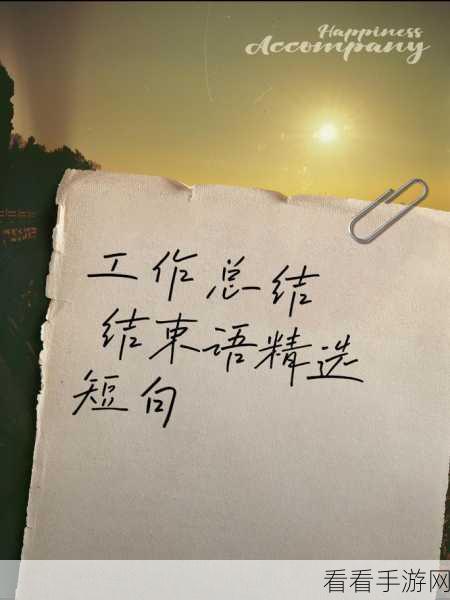 Happiness
Accompany
工作总结
结束语精选
短句
看看手游网